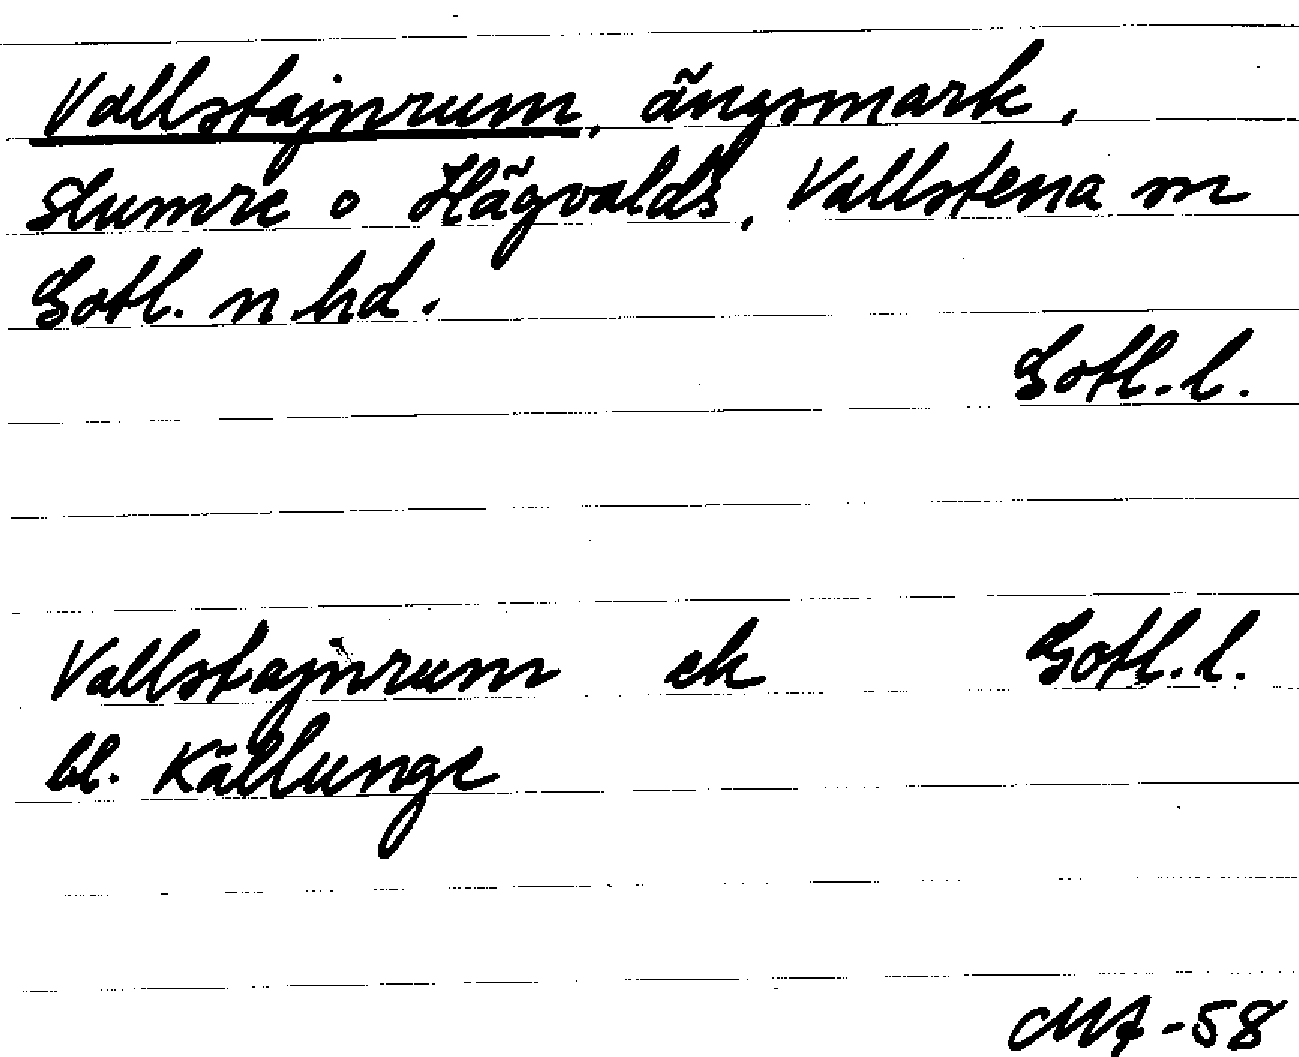 Vallstajnrum, ängsmark,
Slumre o Hägvalds, Vallstena sn
Gotl. n. hd.
Gotl. l.
Vallstajnrum ek Gotl. l.
bl. Källunge
MA -58